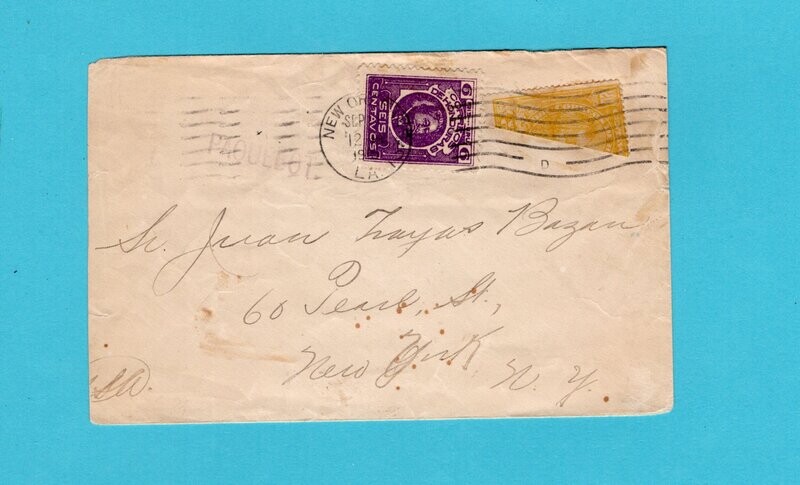 NEW OR
SEP
12
19
LA.
6 CORREOS DE HONDURAS 6
SEIS CENTAVOS
PAQUEBOT
D
Sr. Juan Zayas Bazan
60 Pearl, St.,
New York
N. Y.